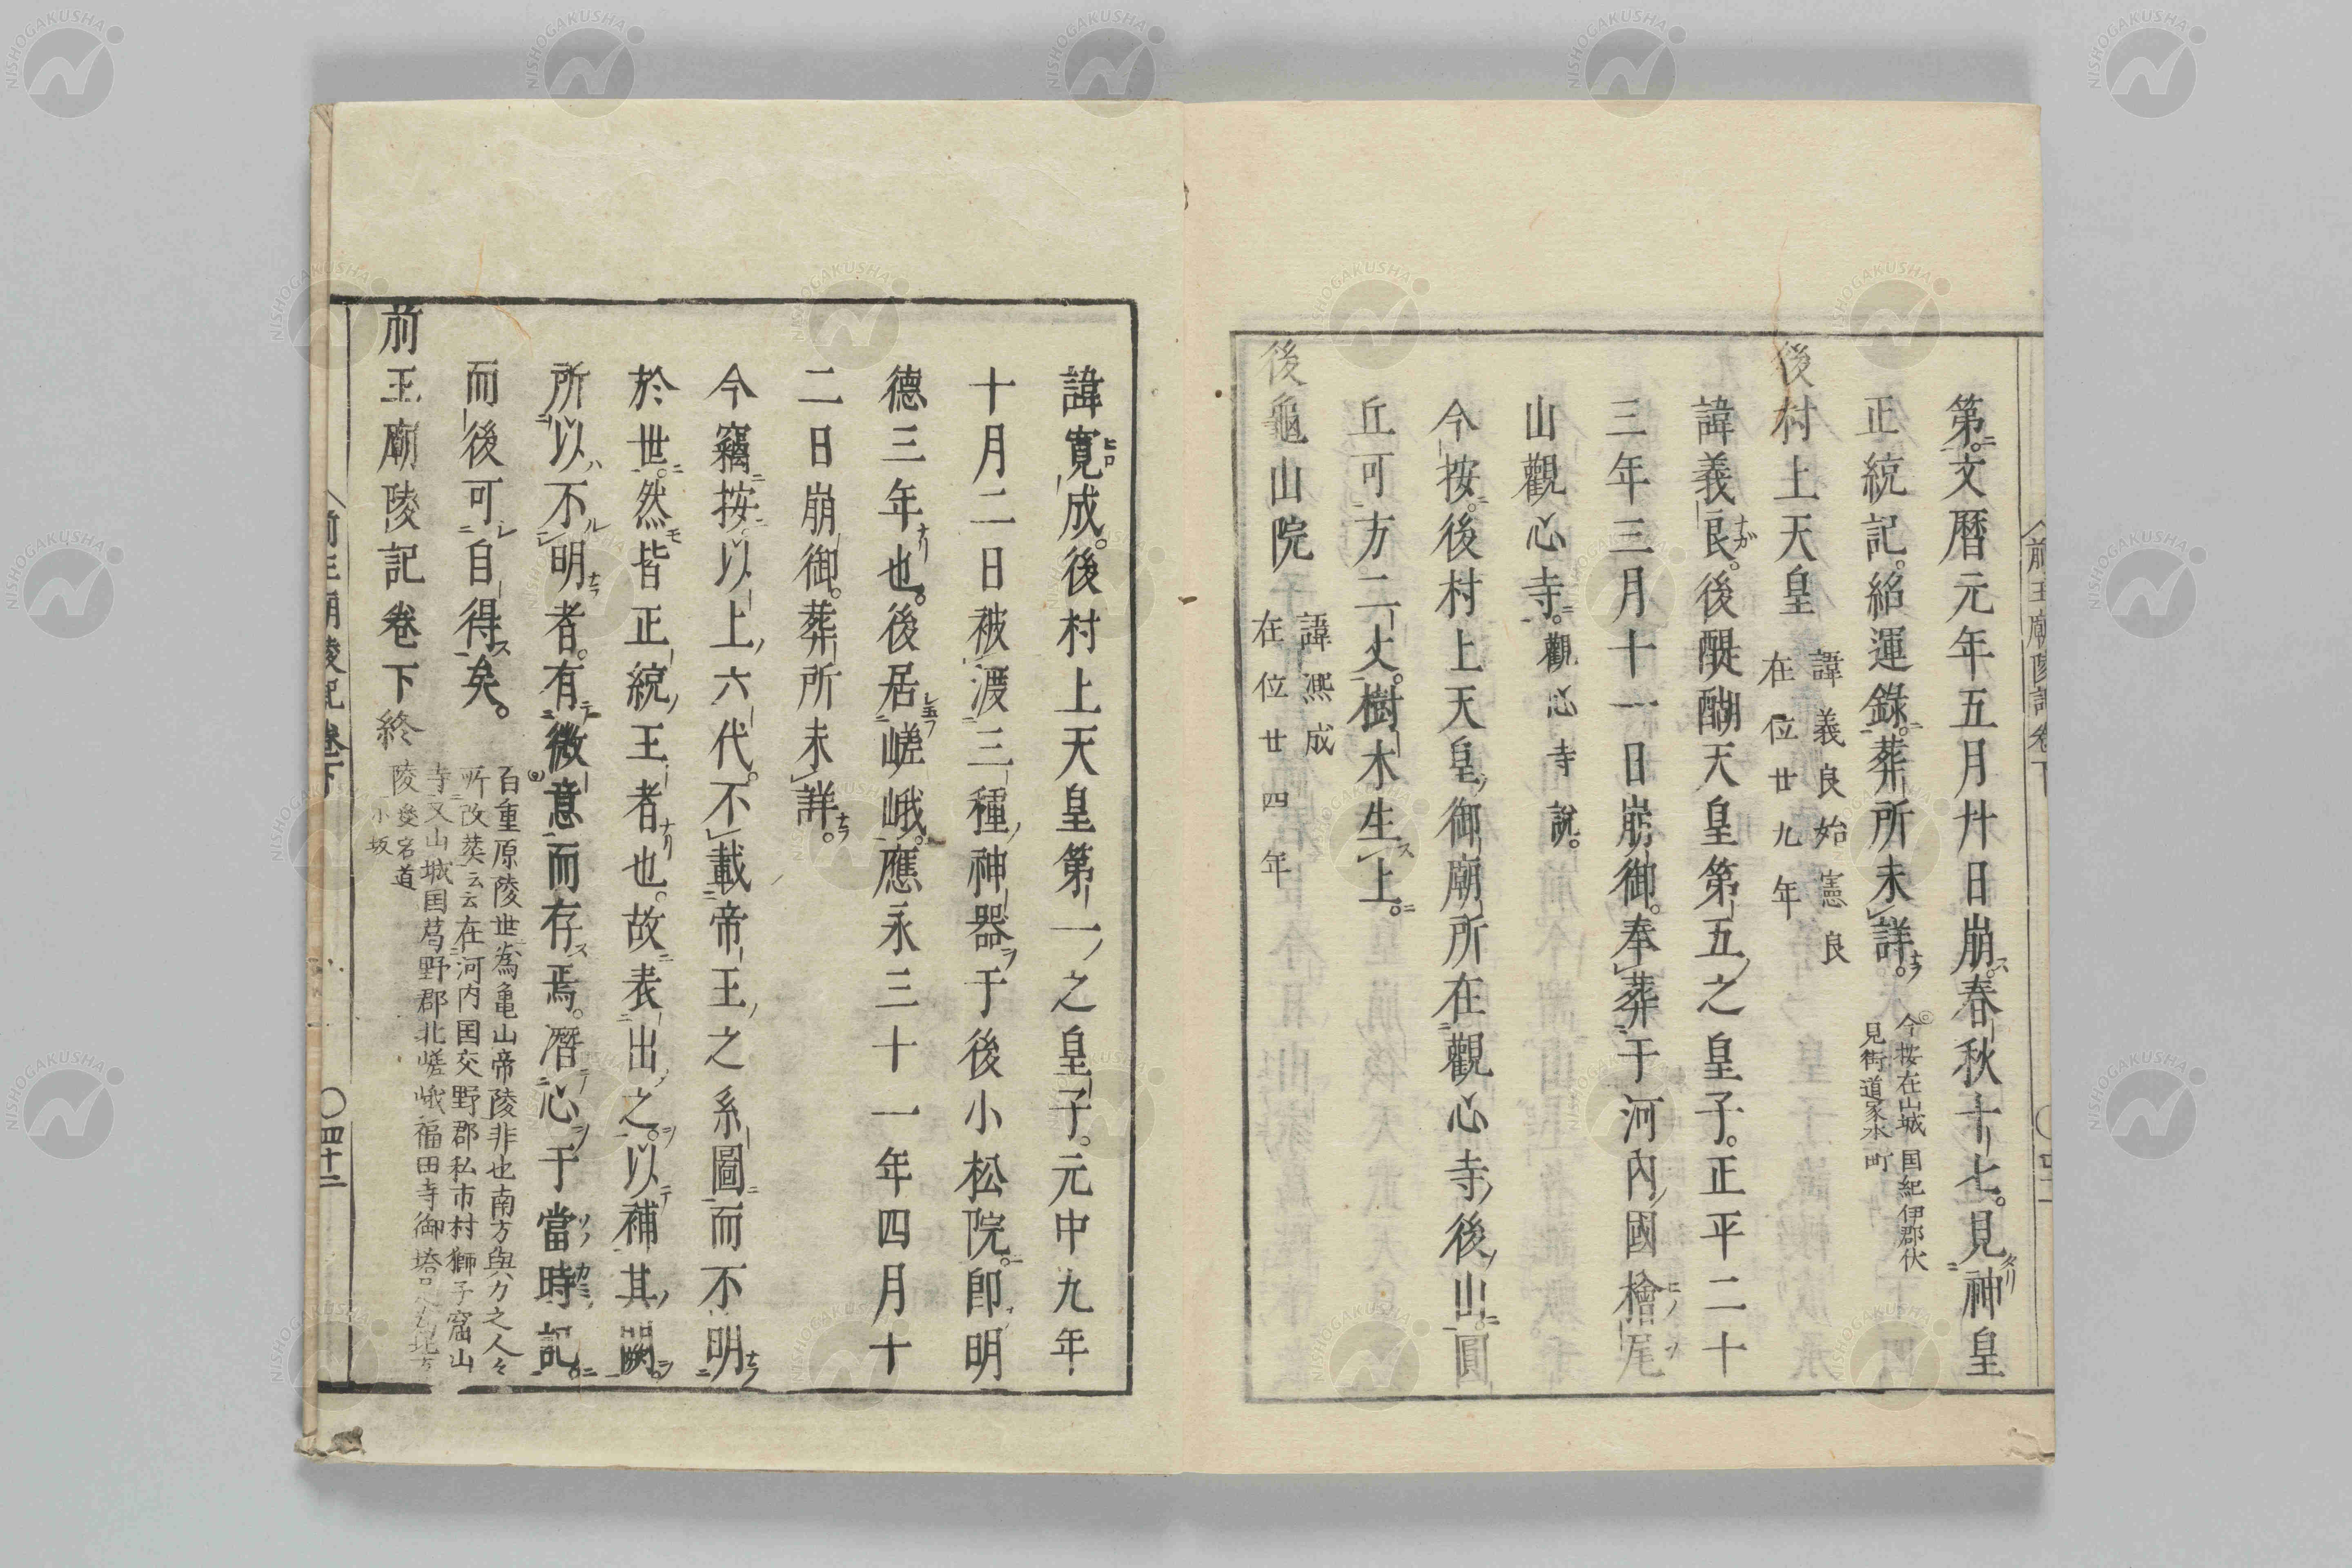 第文曆元年五月廾日崩春秋十七見神皇
正統記紹運錄葬所未詳
今按在山城国紀伊郡伏
見街道家本町
後村上天皇
諱義良始憲良
在位廿九年
諱義良後醍醐天皇第五之皇子正平二十
三年三月十一日崩御奉葬于河內國檜尾
山觀心寺觀心寺說
今按後村上天皇御廟所在觀心寺後山圓
丘可方二丈樹木生上
後龜山院
諱熈成
在位廿四年
諱寬成後村上天皇第一之皇子元中九年
十月二日被渡三種神器于後小松院即明
德三年也後居嵯峨應永三十一年四月十
二日崩御葬所未詳
今竊按以上六代不載帝王之系圖而不明
於世然皆正統王者也故表出之以補其闕
所以不明者有微意而存焉潛心于當時記
而後可自得矣
百重原陵世為亀山帝陵非也南方與力之人々
所改葬云云在河内国交野郡私市村獅子窟山
寺又山城国葛野郡北嵯峨福田寺御塔
陵
小坂
前王廟陵記卷下終
前王廟陵記卷下
四十二
NISHOGAKUSHA